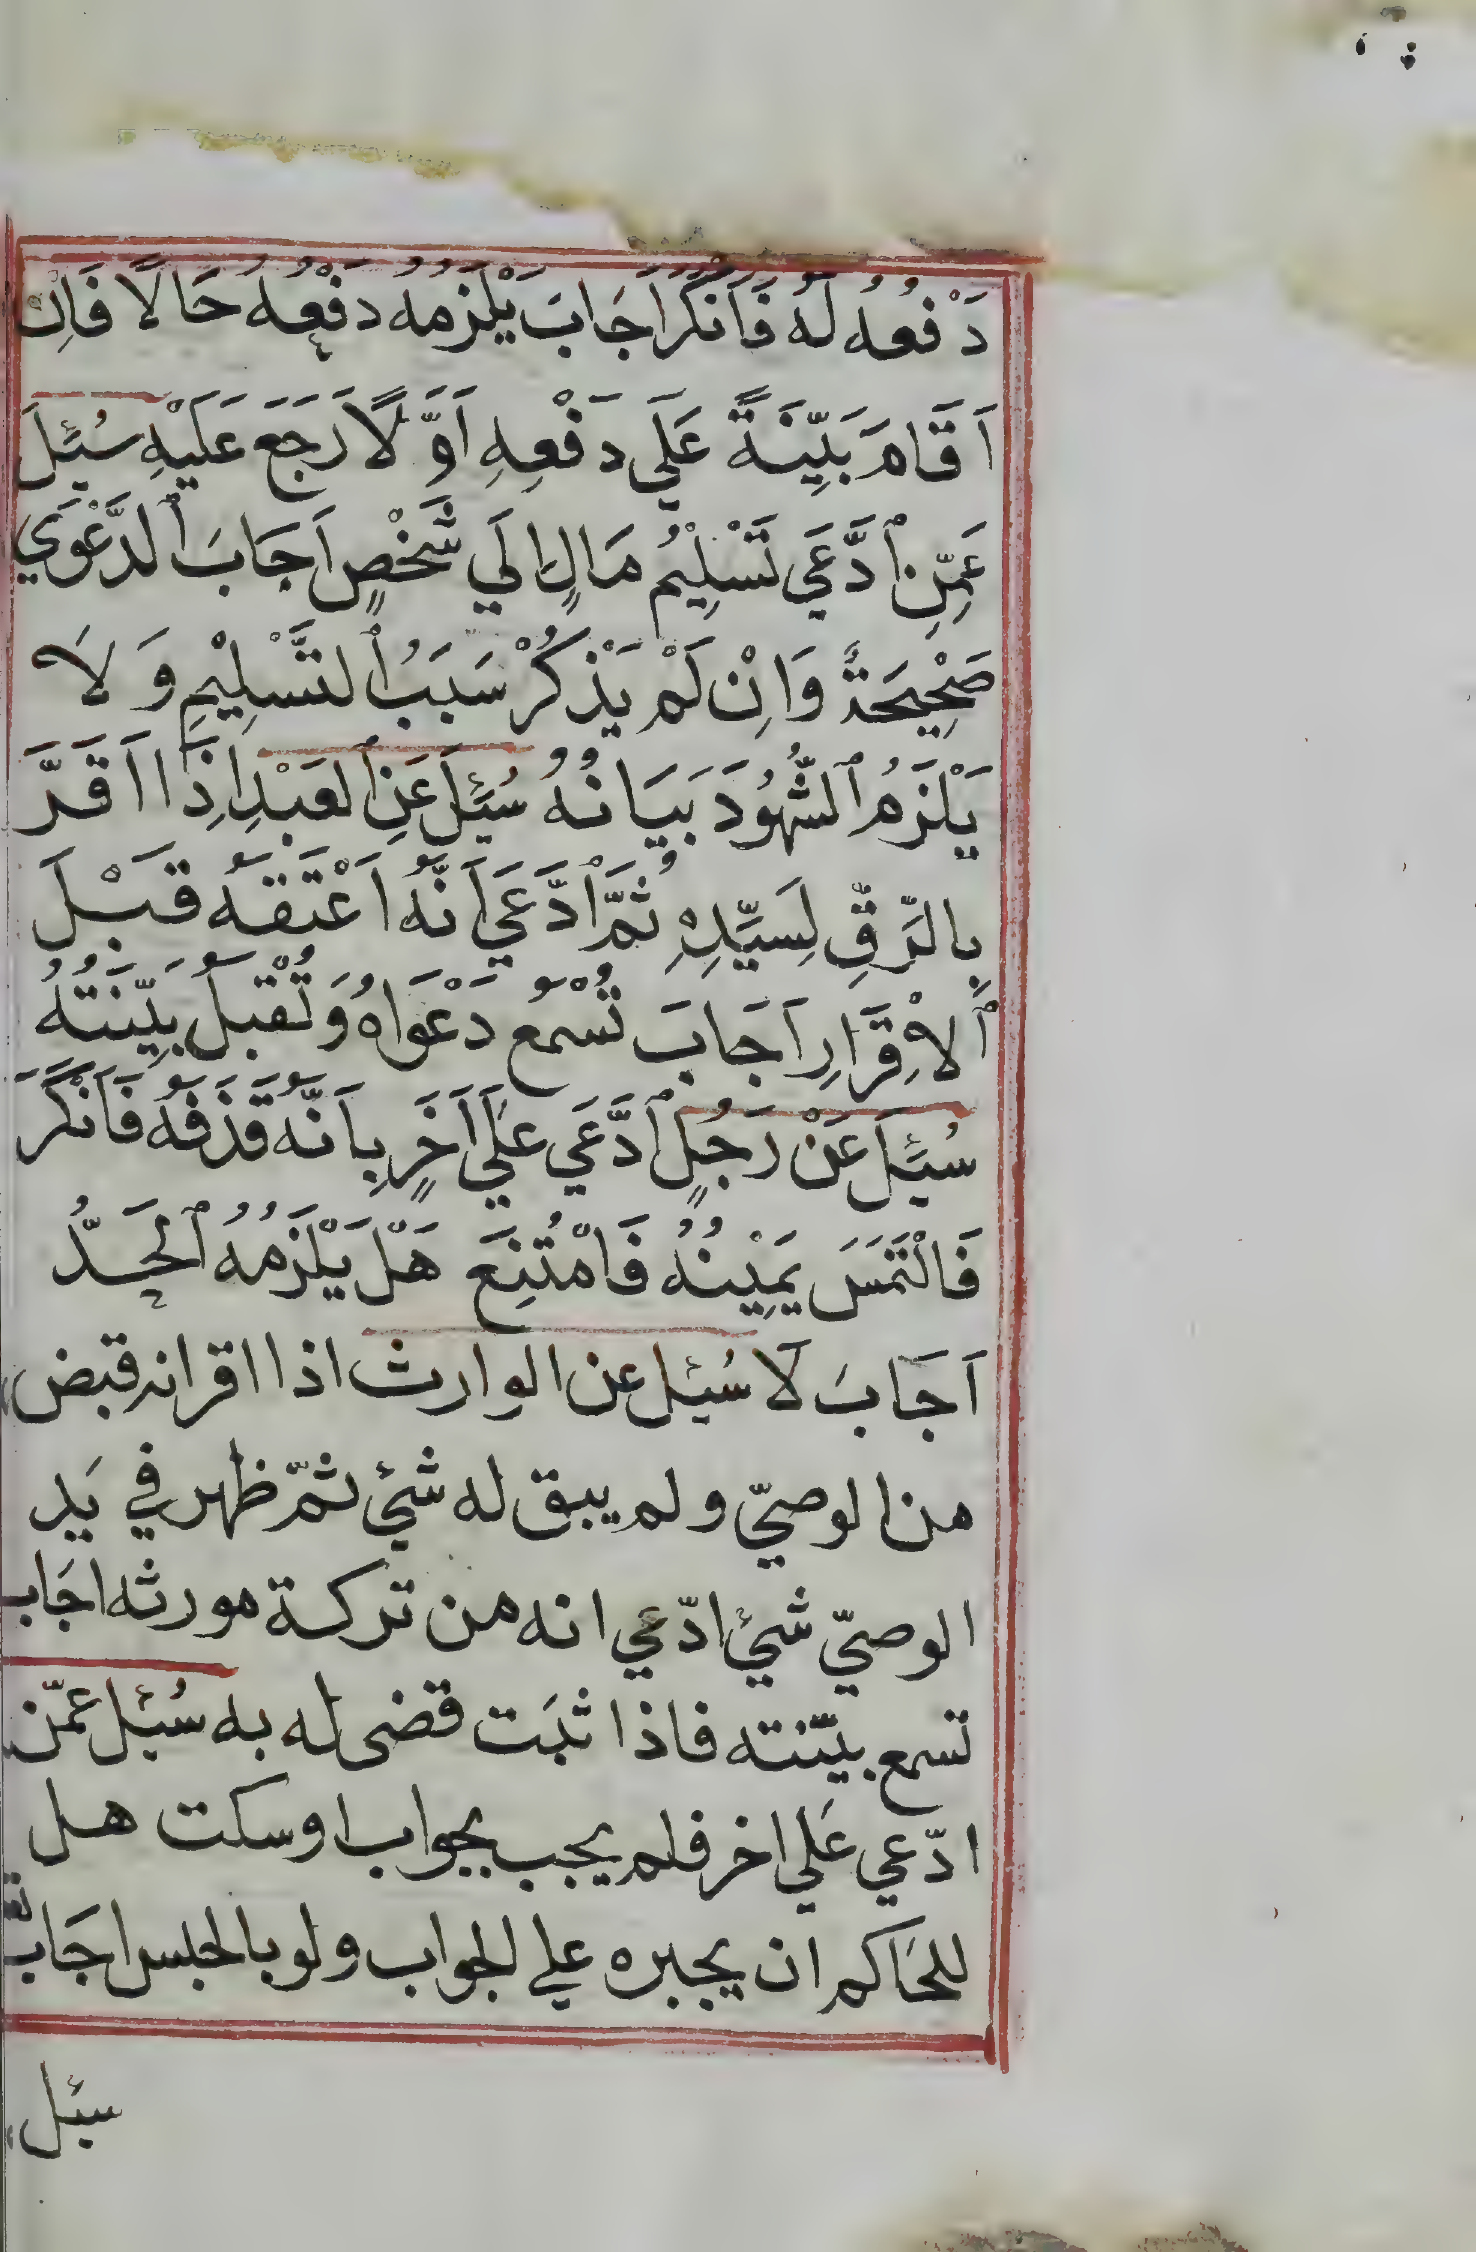 دَفْعُهُ لَهُ فَاَنْكَرَ اَجَابَ يَلْزَمُهُ دَفْعُهُ حَالًا فَاِنْ
اَقَامَ بَيِّنَةً عَلَي دَفْعِهِ اَوَّلًا رَجَعَ عَلَيْهِ سُئِلَ
عَمِّنِ ٱدَّعَي تَسْلِيْمُ مَالٍ اِلَي شَخْصٍ اَجَابَ ٱلدَّعْوَي
صَحِيْحَةٌ وَاِنْ لَمْ يَذْكُرْ سَبَبُ ٱلتَّسْلِيْمِ وَلَا
يَلْزَمُ ٱلشُّهُوُدَ بَيَانُهُ سُئِلَ عَنِ ٱلعَبْدِ اِذَا اَقَرَّ
بِالرِّقِّ لِسَيِّدِهِ ثُمَّ ٱدَّعَي اَنَّهُ اَعْتَقَهُ قَبْلَ
ٱلاِقْرَارِ اَجَابَ تُسْمَعُ دَعْوَاهُ وَتُقْبَلُ بَيِّنَتُهُ
سُئِلَ عَنْ رَجُلٍ ٱدَّعَي عَلَي اَخَرٍ بِاَنَّهُ قَذَفَهُ فَاَنْكَرَ
فَالْتَمَسَ يَمِيْنُهُ فَامْتُنِعَ هَلْ يَلْزَمُهُ ٱلحَدُّ
اَجَابَ لَا سُئِل عن الوارث اذا اقر انه قبض
من الوصيّ ولم يبق له شئ ثمّ ظهر في يَدِ
الوصيّ شئ ادّعي انه من تركة مورثه اجَاب
تسمع بيّنته فاذا ثبَت قضى له به سُئِل عمّن
ادّعي عَلي اخر فلم يجب بجواب او سكت هل
للحَاكم ان يجبره علي الجواب ولو بالحبس اجَاب
سئل